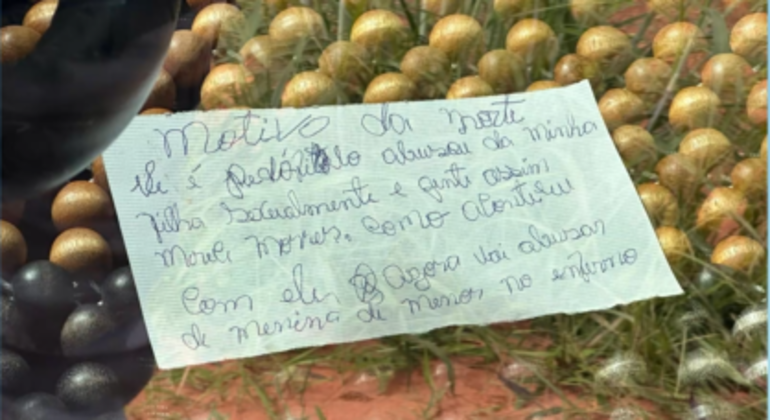 Motivo da morte
Ele é pedófilo abusou da minha
filha sexualmente e gente assim
merece morrer. como aconteceu
com ele. agora vai abusar
de menina de menor no inferno